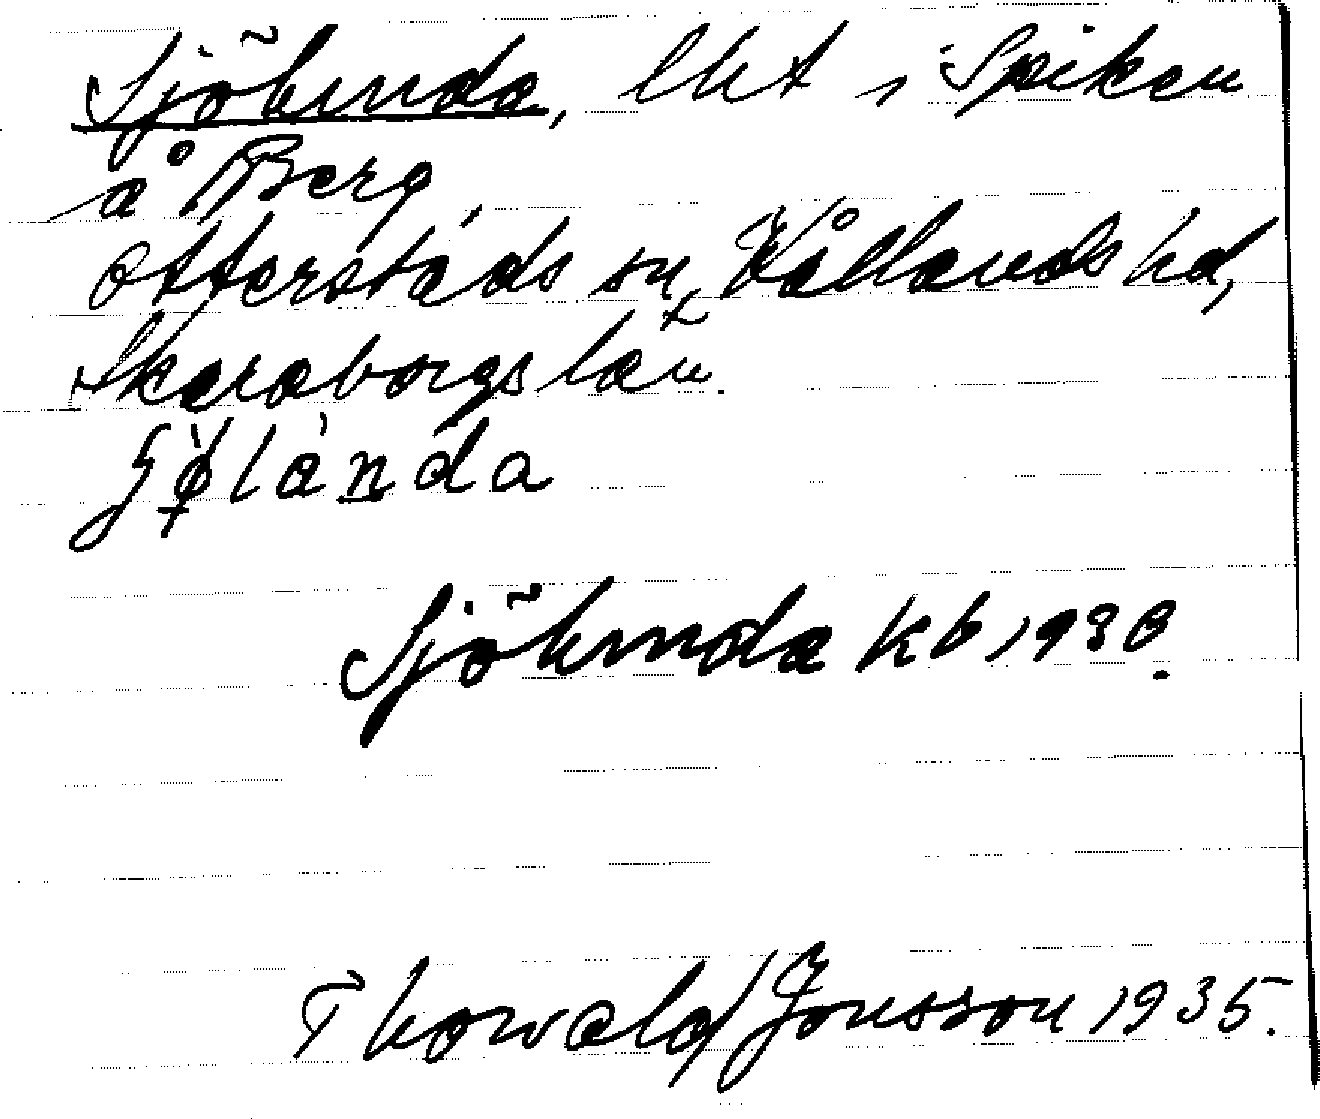 Sjölunda, lht i Spiken
å Berg,
Otterstads sn, Kållands hd,
Skaraborgs län.
Sjölunda kb 1930.
Thorwald Jonsson 1935.